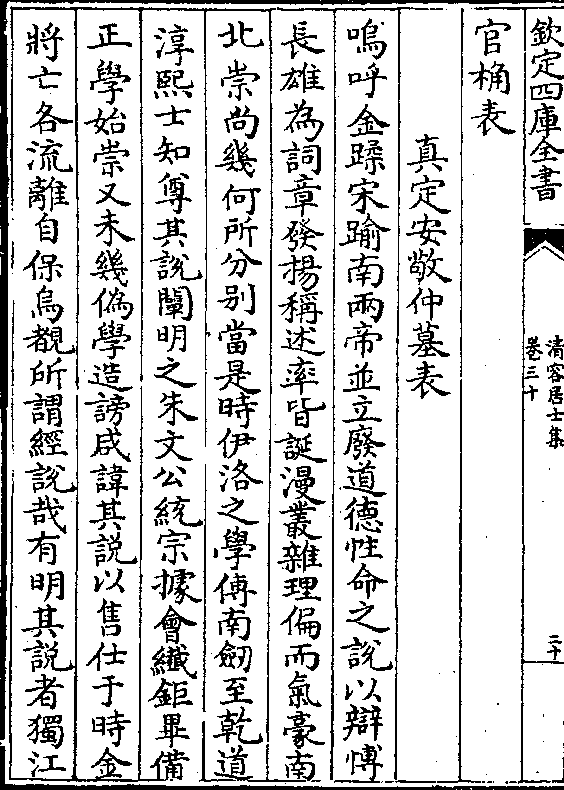 欽定四庫全書
清容居士集
卷三十
二十
官桷表
真定安敬仲墓表
嗚呼金蹂宋踰南兩帝並立廢道德性命之說以辯愽
長雄為詞章發揚稱述率皆誕漫叢雜理偏而氣豪南
北崇尚幾何所分别當是時伊洛之學傅南劒至乾道
淳熙士知尊其說闡明之朱文公統宗據會纖鉅畢備
正學始崇又未幾偽學造謗咸諱其說以售仕于時金
將亡各流離自保烏覩所謂經說哉有明其說者獨江